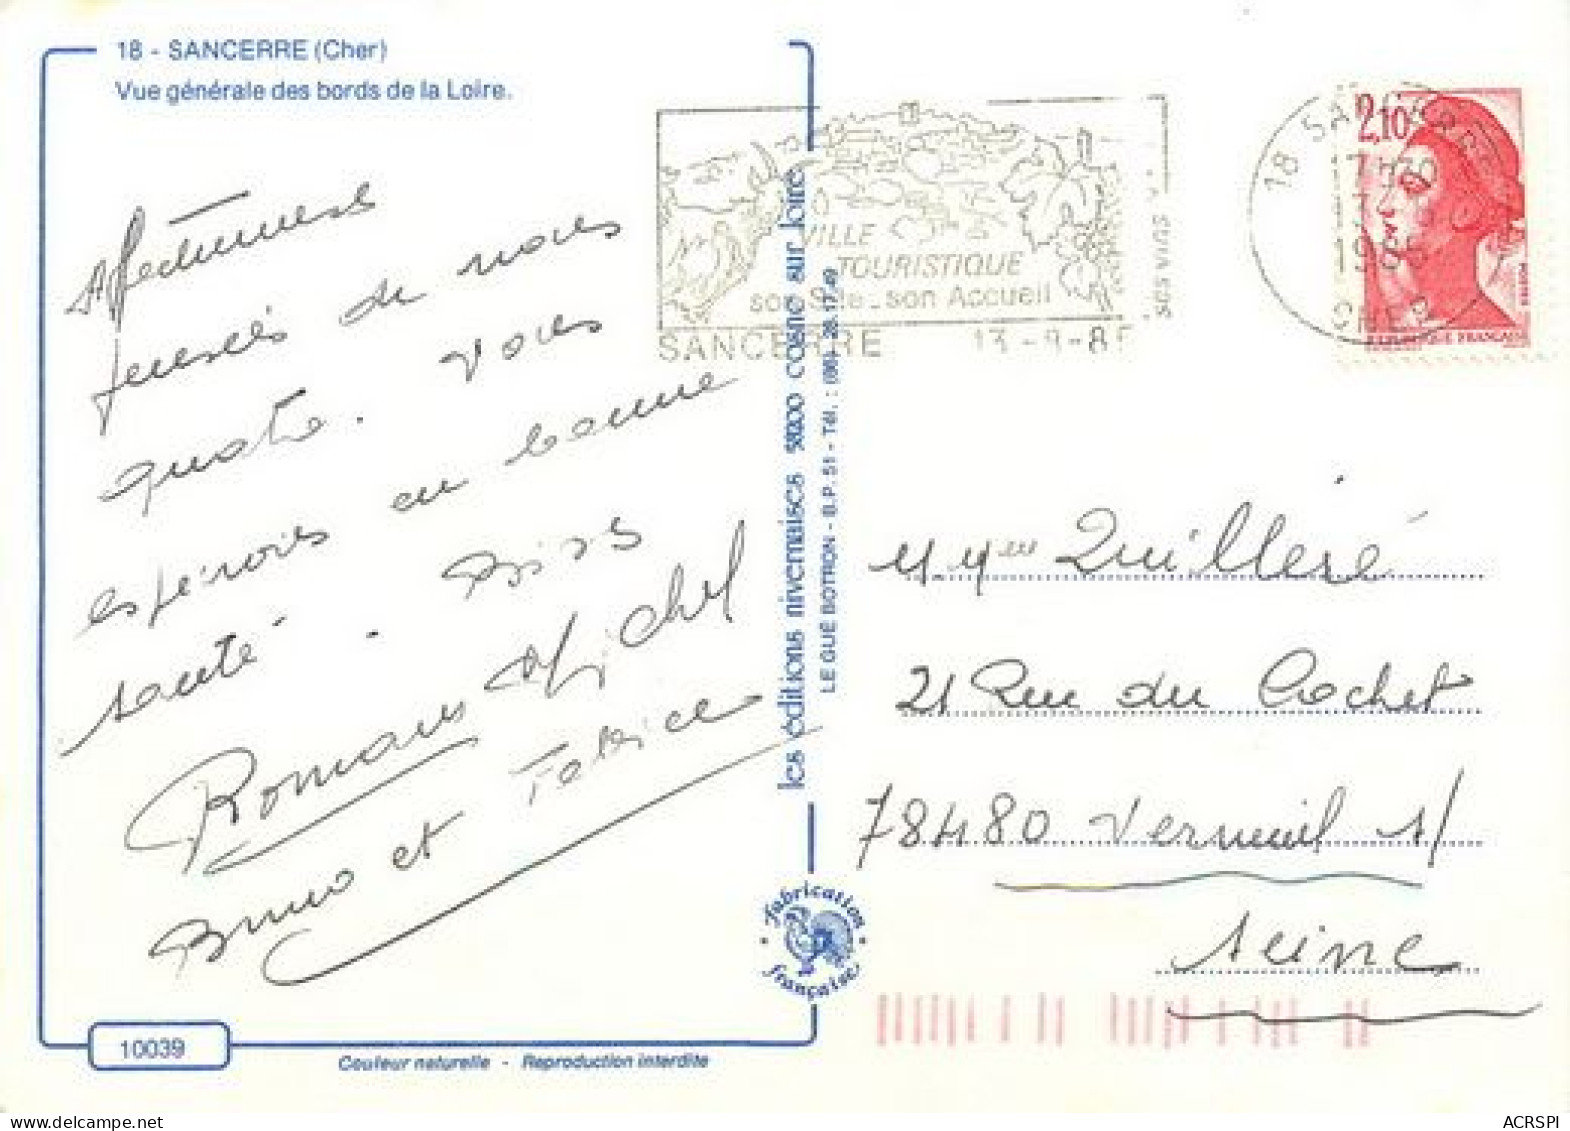 18 - SANCERRE (Cher)
Vue générale des bords de la Loire.
Affectueuses
pensées de nous
quatre. Vous
espérons en bonne
santé. Bises
Romans Michel
Bruno et Fabrice
10039
Couleur naturelle - Reproduction interdite
les éditions nivernaises 58200 cosne sur loire
LE GUÉ BOTRON - B.P. 51 - Tél. : (86) 28.17.49
Fabrication
française
VILLE
TOURISTIQUE
son Site_son Accueil
ses vins
SANCERRE 13-8-85
18 SANCERRE
17H30
CHER
2,10
REPUBLIQUE FRANÇAISE
M Mme Quilleré
21 Rue du Cochet
78480 Verneuil s/
seine
ACRSPI